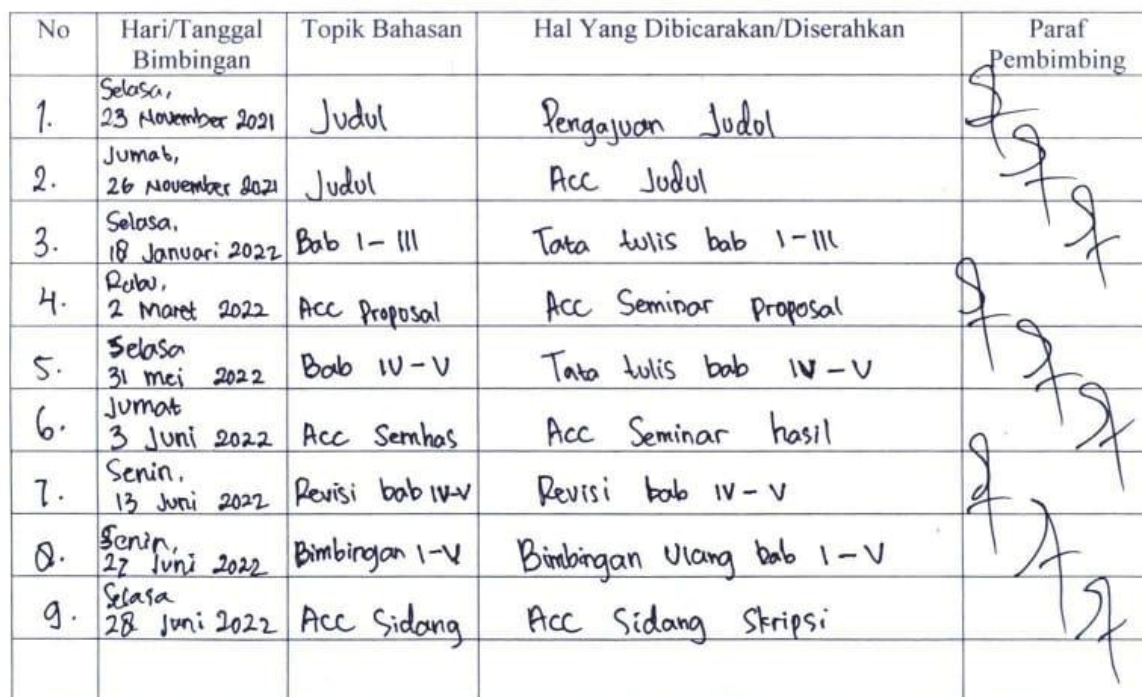 No Hari/Tanggal Topik Bahasan Hal Yang Dibicarakan/Diserahkan Paraf
Bimbingan Pembimbing
Selasa,
1. 23 November 2021 Judul Pengajuan Judul
Jumat,
2. 26 November 2021 Judul Acc Judul
Selasa,
3. 18 Januari 2022 Bab I - III Tata tulis bab I - III
Rabu,
4. 2 Maret 2022 Acc Proposal Acc Seminar Proposal
Selasa
5. 31 mei 2022 Bab IV - V Tata tulis bab IV - V
Jumat
6. 3 Juni 2022 Acc Semhas Acc Seminar hasil
Senin,
7. 13 Juni 2022 Revisi bab IV-V Revisi bab IV - V
Senin,
8. 27 Juni 2022 Bimbingan I-V Bimbingan Ulang bab I - V
Selasa
9. 28 Juni 2022 Acc Sidang Acc Sidang Skripsi